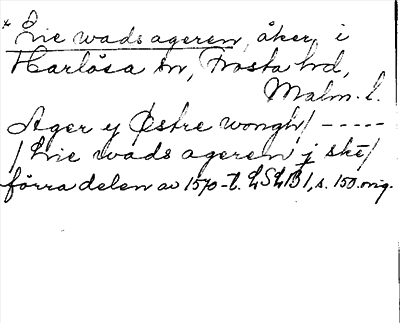 * Lie wads ageren, åker, i
Harlösa sn, Frosta hd,
Malm. l.
Ager y Østre wongh/ -----
/ Lie wads ageren j ske/
förra delen av 1570-t. LSLB 1, s. 150. orig.